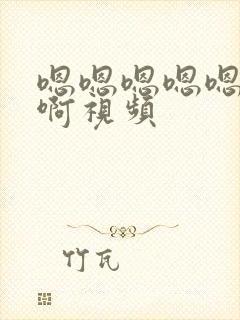 嗯嗯嗯嗯嗯
啊視頻
竹瓦